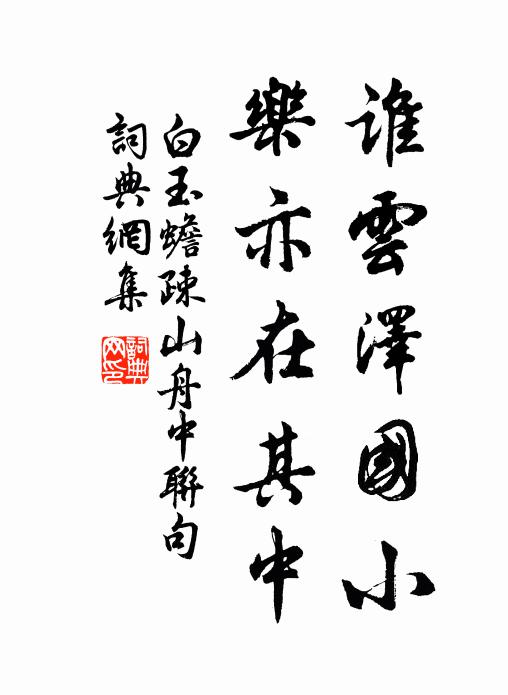 誰雲澤國小
樂亦在其中
白玉蟾疎山舟中聯句
詞典網集
詞典网印